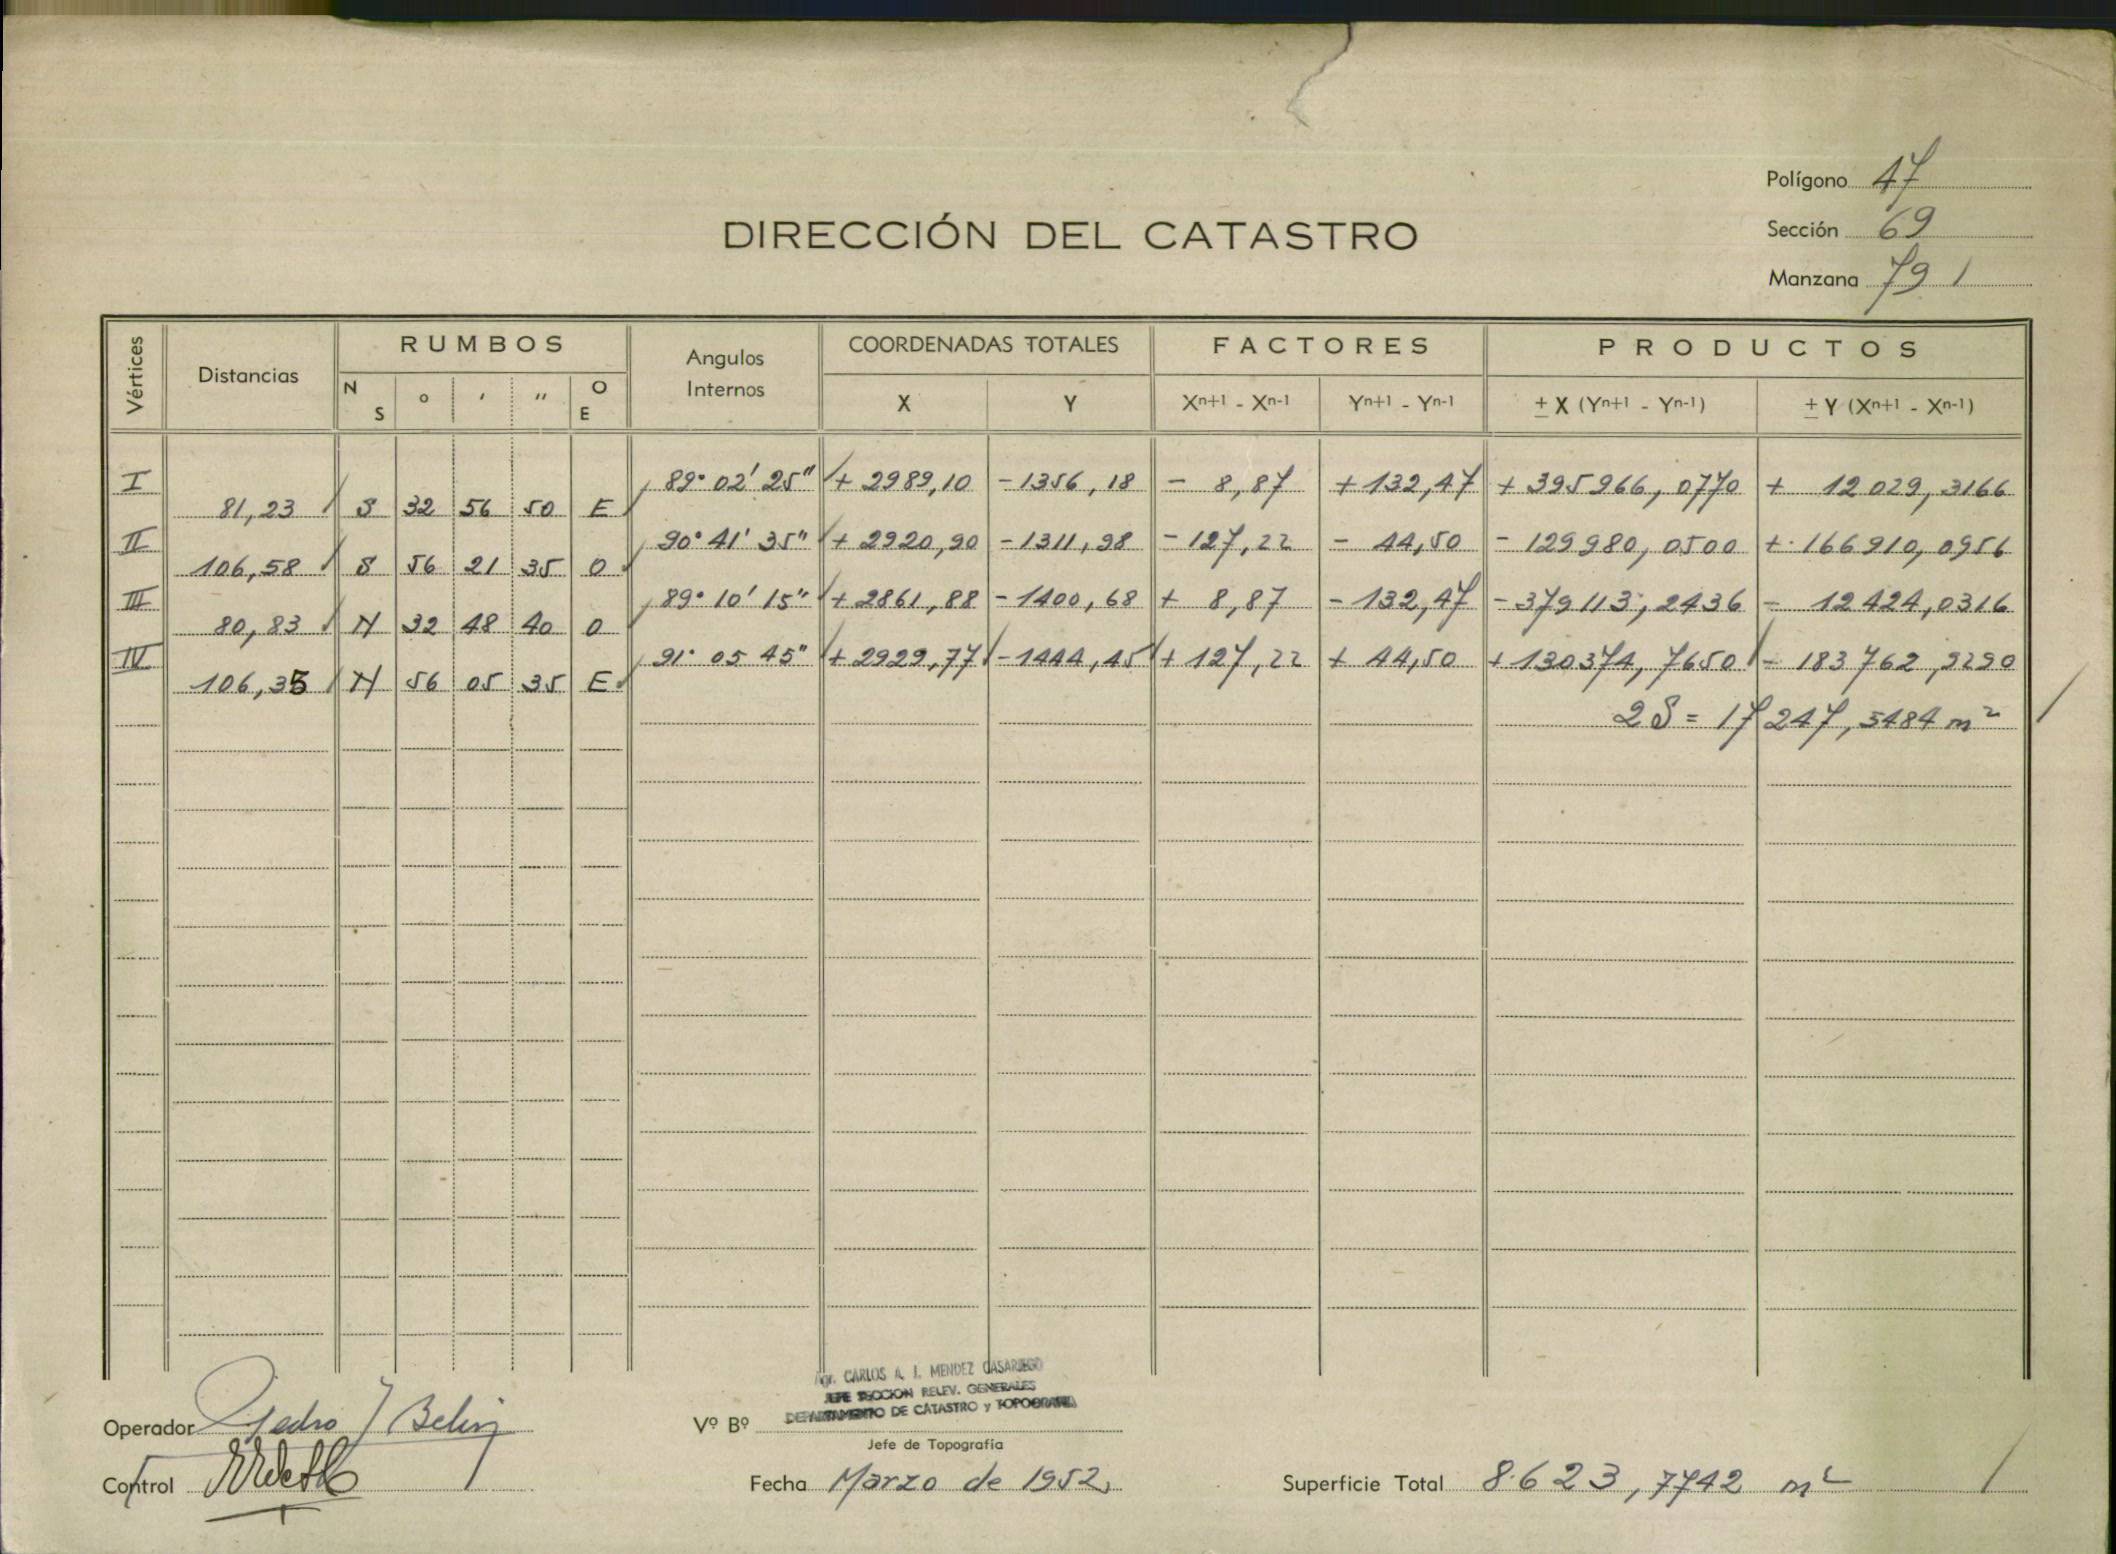 Polígono 47
DIRECCIÓN DEL CATASTRO
Sección 69
Manzana 791
Vértices Distancias RUMBOS Angulos Internos COORDENADAS TOTALES FACTORES PRODUCTOS
N S ° ' " O E X Y Xⁿ⁺¹ - Xⁿ⁻¹ Yⁿ⁺¹ - Yⁿ⁻¹ ± X (Yⁿ⁺¹ - Yⁿ⁻¹) ± Y (Xⁿ⁺¹ - Xⁿ⁻¹)
I 89° 02' 25" + 2989,10 - 1356,18 - 8,87 + 132,47 + 395966,0770 + 12029,3166
81,23 S 32 56 50 E
II 90° 41' 35" + 2920,90 - 1311,98 - 127,22 - 44,50 - 129980,0500 + 166910,0956
106,58 S 56 21 35 O
III 89° 10' 15" + 2861,88 - 1400,68 + 8,87 - 132,47 - 379113,2436 - 12424,0316
80,83 N 32 48 40 O
IV 91° 05 45" + 2929,77 - 1444,45 + 127,22 + 44,50 + 130374,7650 - 183762,9290
106,35 N 56 05 35 E
2S = 17247,5484 m²
Agr. CARLOS A. J. MENDEZ CASARIEGO
JEFE SECCION RELEV. GENERALES
DEPARTAMENTO DE CATASTRO y TOPOGRAFIA
Operador Pedro J Belin
Vº Bº
Jefe de Topografía
Control
Fecha Marzo de 1952,
Superficie Total 8.623,7742 m²